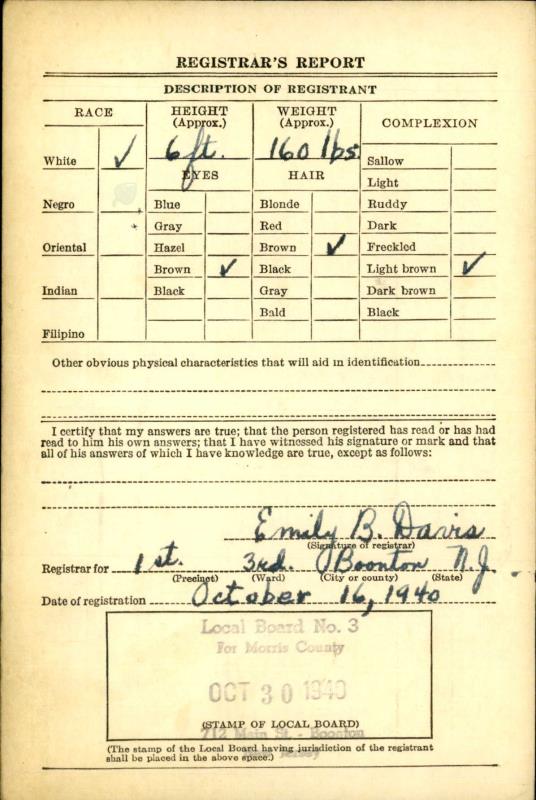 REGISTRAR'S REPORT
DESCRIPTION OF REGISTRANT
RACE
HEIGHT
(Approx.)
WEIGHT
(Approx.)
COMPLEXION
6 ft.
160 lbs.
White ✓
EYES
HAIR
Sallow
Light
Negro
Blue
Blonde
Ruddy
Gray
Red
Dark
Oriental
Hazel
Brown ✓
Freckled
Brown ✓
Black
Light brown ✓
Indian
Black
Gray
Dark brown
Bald
Black
Filipino
Other obvious physical characteristics that will aid in identification
I certify that my answers are true; that the person registered has read or has had
read to him his own answers; that I have witnessed his signature or mark and that
all of his answers of which I have knowledge are true, except as follows:
Emily B. Davis
(Signature of registrar)
Registrar for 1st. 3rd. Boonton N.J.
(Precinct) (Ward) (City or county) (State)
Date of registration October 16, 1940
Local Board No. 3
For Morris County
OCT 30 1940
(STAMP OF LOCAL BOARD)
712 Main St. - Boonton
New Jersey
(The stamp of the Local Board having jurisdiction of the registrant
shall be placed in the above space.)